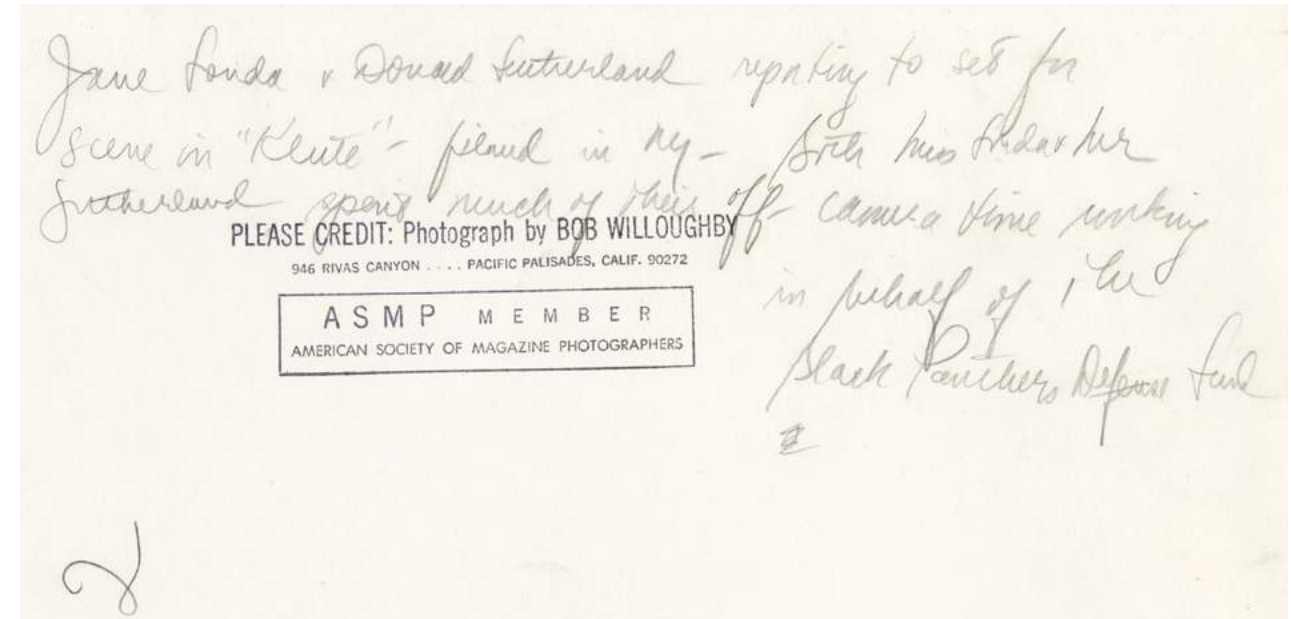 Jane Fonda & Donald Sutherland reporting to set for
scene in "Klute" - filmed in NY - Both Miss Fonda & Mr
Sutherland spent much of their off-camera time working
in behalf of the
Black Panthers Defense Fund
PLEASE CREDIT: Photograph by BOB WILLOUGHBY
946 RIVAS CANYON .... PACIFIC PALISADES, CALIF. 90272
ASMP MEMBER
AMERICAN SOCIETY OF MAGAZINE PHOTOGRAPHERS